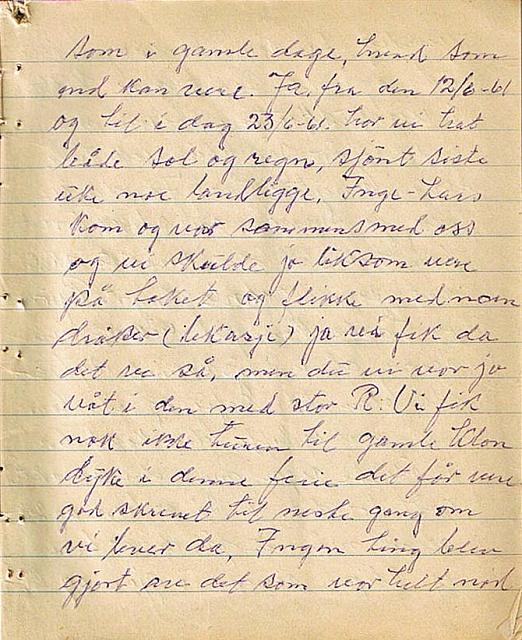 som i gamle dage, hvad som
end kan vere. Ja, fra den 12/6-61
og til i dag 23/6-61. har vi hat
både sol og regn, sjönt siste
uke noe landligge, Inge-Lars
kom og var sammens med oss
og vi skulde jo liksom vere
på taket og flikke med noen
dråper (lekasje) ja vel fik da
det vere så, men du vi vor jo
våt i den med stor R. Vi fik
nok ikke turen til gamle Klon
dyke i denne ferie det får vere
god skrevet til neste gang om
vi lever da, Ingen ting blev
gjort av det som vor helt nød